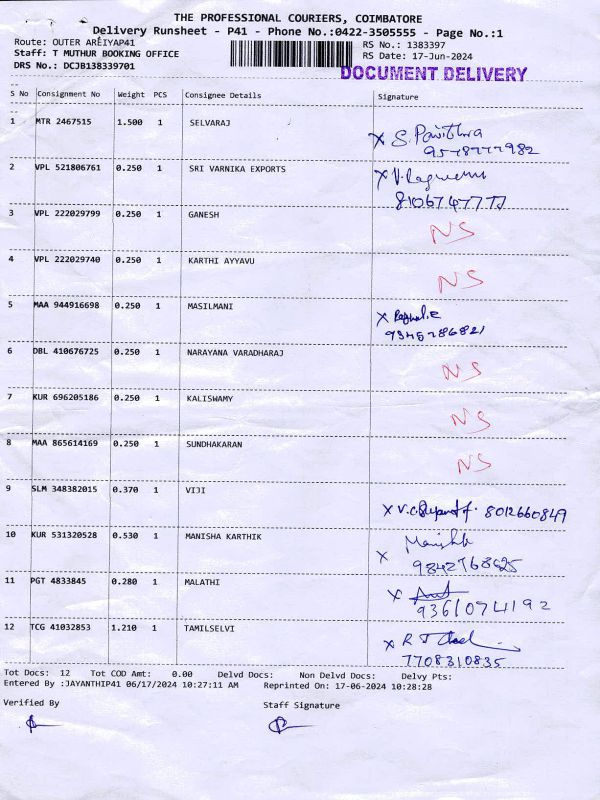 THE PROFESSIONAL COURIERS, COIMBATORE
Delivery Runsheet - P41 - Phone No.:0422-3505555 - Page No.:1
Route: OUTER AREIYAP41 RS No.: 1383397
Staff: T MUTHUR BOOKING OFFICE RS Date: 17-Jun-2024
DRS No.: DCJB138339701 DOCUMENT DELIVERY
S No Consignment No Weight PCS Consignee Details Signature
1 MTR 2467515 1.500 1 SELVARAJ
X S. Pavithra
2 VPL 521806761 0.250 1 SRI VARNIKA EXPORTS
X V.
3 VPL 222029799 0.250 1 GANESH
NS
4 VPL 222029740 0.250 1 KARTHI AYYAVU
NS
5 MAA 944916698 0.250 1 MASILMANI
X
9345286821
6 DBL 410676725 0.250 1 NARAYANA VARADHARAJ
NS
7 KUR 696205186 0.250 1 KALISWAMY
NS
8 MAA 865614169 0.250 1 SUNDHAKARAN
NS
9 SLM 348382015 0.370 1 VIJI
X V.C. 8012660849
10 KUR 531320528 0.530 1 MANISHA KARTHIK
X
11 PGT 4833845 0.280 1 MALATHI
X
9361074192
12 TCG 41032853 1.210 1 TAMILSELVI
X R
7708310835
Tot Docs: 12 Tot COD Amt: 0.00 Delvd Docs: Non Delvd Docs: Delvy Pts:
Entered By :JAYANTHIP41 06/17/2024 10:27:11 AM Reprinted On: 17-06-2024 10:28:28
Verified By Staff Signature